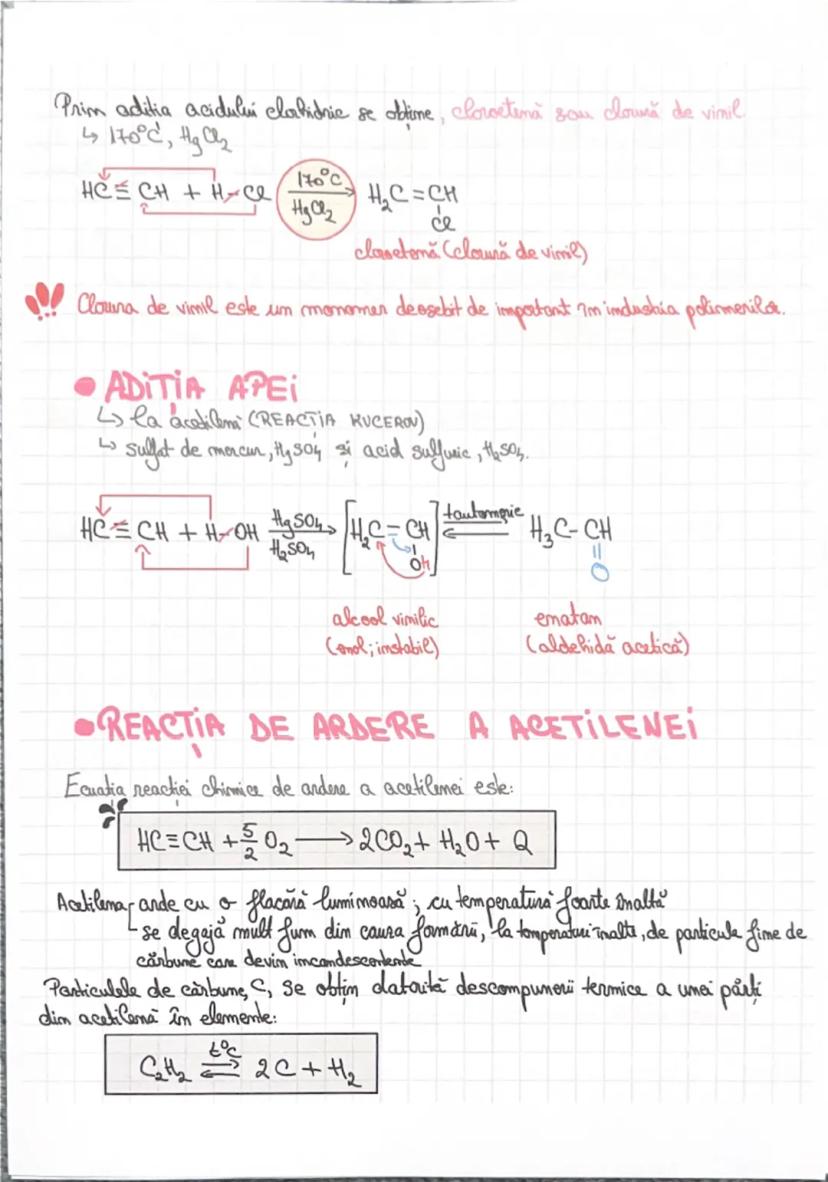 Prin adiția acidului clorhidric se obține, cloroetenă sau clorură de vinil
↳ 170°C, HgCl₂
HC≡CH + H-Cl 170°C HgCl₂ → H₂C=CH
Cl
cloroetenă (clorură de vinil)
!!! Clorura de vinil este un monomer deosebit de important în industria polimerilor.
• ADIȚIA APEI
↳ la acetilenă (REACȚIA KUCEROV)
↳ sulfat de mercur, HgSO₄ și acid sulfuric, H₂SO₄.
HC≡CH + H-OH HgSO₄ H₂SO₄ → [H₂C=CH OH] tautomerie ⇌ H₃C-CH
O
alcool vinilic etanan
(enol; instabil) (aldehidă acetică)
• REACȚIA DE ARDERE A ACETILENEI
Ecuația reacției chimice de ardere a acetilenei este:
HC≡CH + 5/2 O₂ → 2CO₂ + H₂O + Q
Acetilena arde cu o flacără luminoasă; cu temperatură foarte înaltă
se degajă mult fum din cauza formării, la temperaturi înalte, de particule fine de
cărbune care devin incandescente
Particulele de cărbune, C, se obțin datorită descompunerii termice a unei părți
din acetilenă în elemente:
C₂H₂ t°C ⇌ 2C + H₂